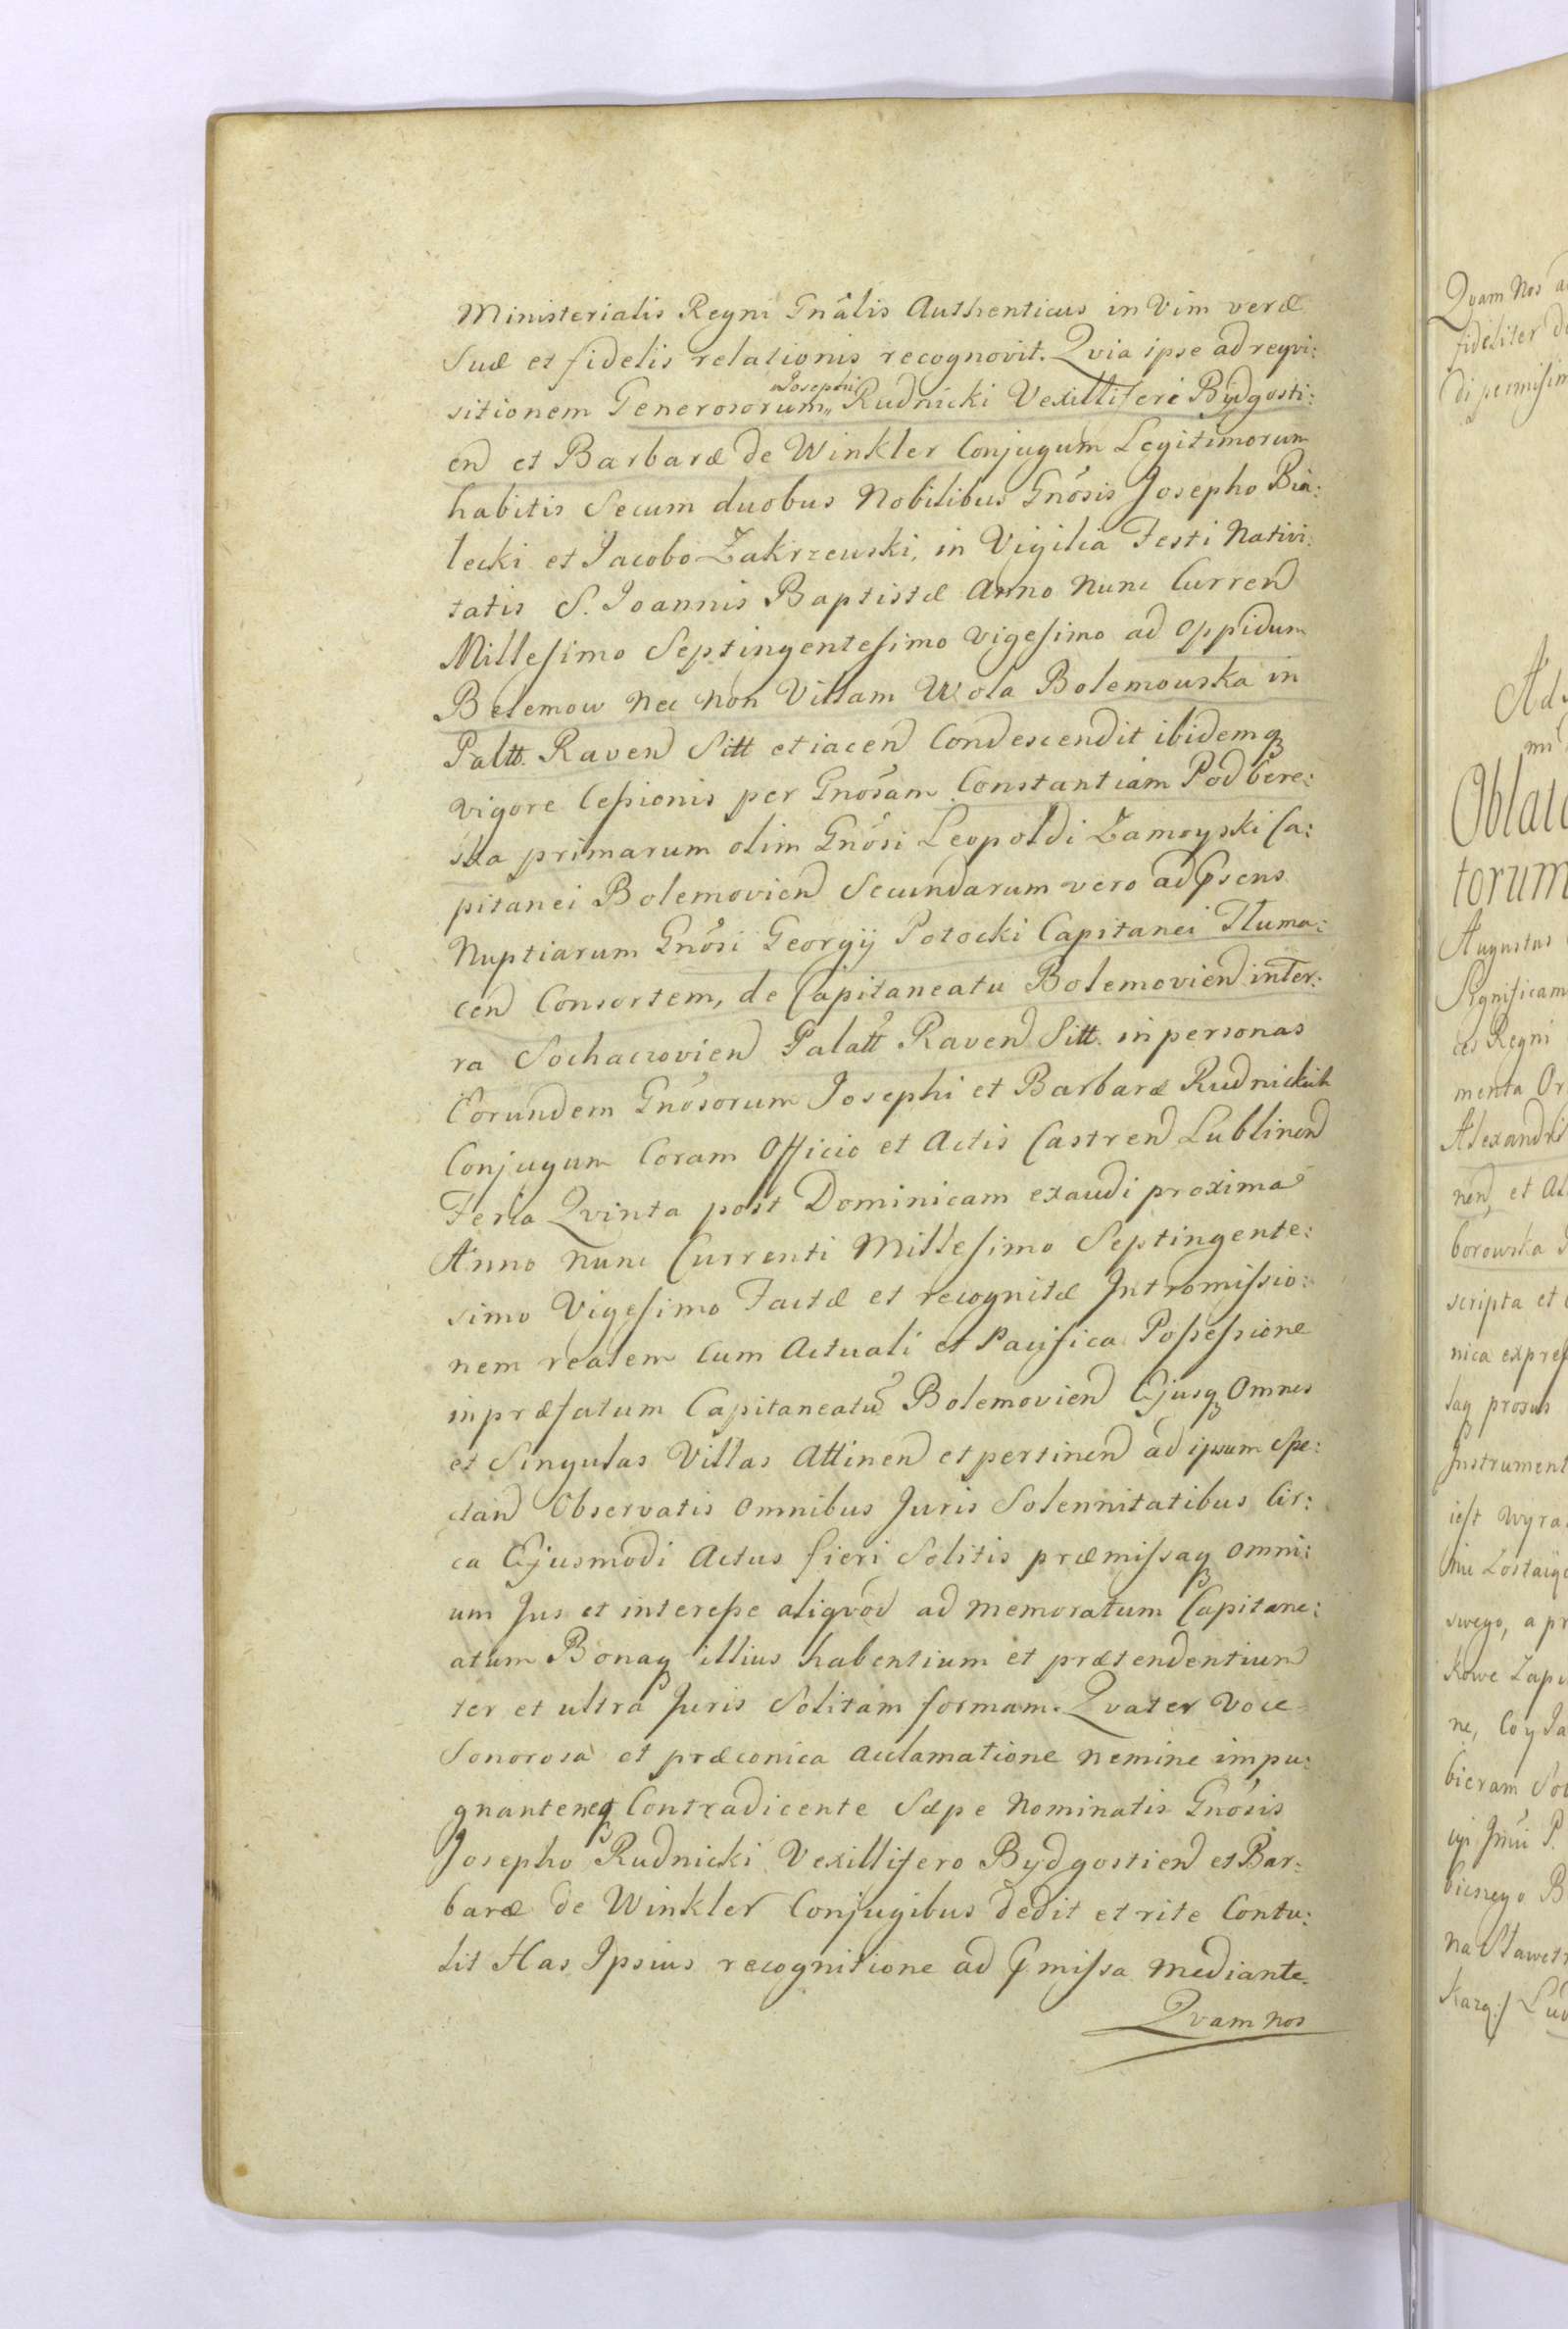 Ministerialis Regni Gnâlis Authenticus in Vim veræ
Suæ et fidelis relationis recognovit. Qvia ipse ad reqvi:
sitionem Generosorum „Josephi Rudnicki Vexilliferi Bydgosti:
en et Barbaræ de Winkler Conjugum Legitimorum
habitis Secum duobus Nobilibus Gnôsis Josepho Bia:
lecki et Jacobo Zakrzewski, in Vigilia Festi Nativi:
tatis S. Joannis Baptistæ Anno Nunc Curren
Millesimo Septingentesimo vigesimo ad Oppidum
Belemow Nec Non Villam Wola Bolemowska in
Paltt. Raven Sitt et iacen Condescendit ibidemq
vigore Cessionis per Gnôsam Constantiam Podbere:
ska primarum olim Gnôsi Leopoldi Zamoyski Ca:
pitanei Bolemovien Secundarum vero ad Psens
Nuptiarum Gnôsi Georgij Potocki Capitanei Tłuma:
cen Consortem, de Capitaneatu Bolemovien inter:
ra Sochaczovien Palatt Raven Sitt. in personas
Eorundem Gnôsorum Josephi et Barbaræ Rudnickich
Conjugum Coram Officio et Actis Castren Lublinen
Feria Qvinta post Dominicam exaudi proxima
Anno Nunc Currenti Millesimo Septingente:
simo Vigesimo Factæ et recognitæ Intromissio:
nem realem Cum Actuali et Pacifica Possessione
in præfatum Capitaneatū Bolemovien Ejusq Omnes
et Singulas Villas Attinen et pertinen ad ipsum Spe:
ctan Observatis Omnibus Juris Solennitatibus Cir:
ca Ejusmodi Actus fieri Solitis præmissaq omni:
um Jus et interesse aliqvod ad memoratum Capitane:
atum Bonaq illius habentium et prætendentium
ter et ultra Juris Solitam formam. Qvater Voce
Sonorosa et præconica acclamatione nemine impu:
gnanteneq Contradicente Sæpe Nominatis Gnôsis
Josepho Rudnicki Vexillifero Bydgostien et Bar:
baræ de Winkler Conjugibus dedit et rite Contu:
lit Has Ipsius recognitione ad Pmissa mediante.
Qvam nos
Qvam Nos
fideliter
di permisim
Oblata
torum
Augustus
Significam
Regni
menta Or
Alexandri
nen, et
borowska
scripta et
nica expres
laq prosus
Instrument
iest wyra
swego, a pr
kowe Zapi
ne, Co y Ja
bieram